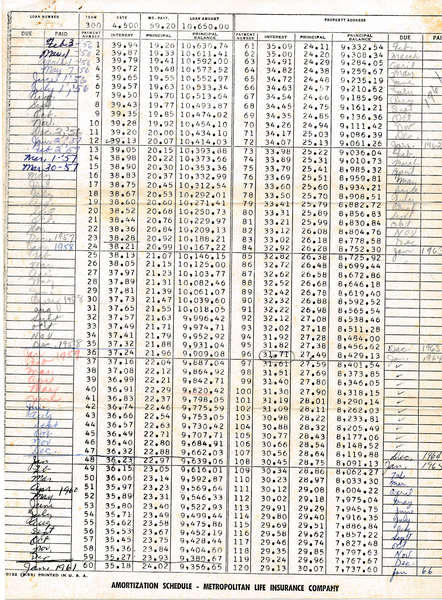 LOAN NUMBER TERM RATE MO. PAYT. LOAN AMOUNT PROPERTY ADDRESS
300 4.500 59.20 10,650.00
DUE PAID PAYMENT NUMBER INTEREST PRINCIPAL PRINCIPAL BALANCE PAYMENT NUMBER INTEREST PRINCIPAL PRINCIPAL BALANCE DUE PAID
1 39.94 19.26 10,630.74 61 35.09 24.11 9,332.54 Feb.
2 39.87 19.33 10,611.41 62 35.00 24.20 9,308.34 March
3 39.79 19.41 10,592.00 63 34.91 24.29 9,284.05
4 39.72 19.48 10,572.52 64 34.82 24.38 9,259.67 May
5 39.65 19.55 10,552.97 65 34.72 24.48 9,235.19
6 39.57 19.63 10,533.34 66 34.63 24.57 9,210.62
7 39.50 19.70 10,513.64 67 34.54 24.66 9,185.96
Sept 8 39.43 19.77 10,493.87 68 34.45 24.75 9,161.21
Oct. 9 39.35 19.85 10,474.02 69 34.35 24.85 9,136.36 Oct
Nov. 10 39.28 19.92 10,454.10 70 34.26 24.94 9,111.42 Nov
11 39.20 20.00 10,434.10 71 34.17 25.03 9,086.39 Dec
12 39.13 20.07 10,414.03 72 34.07 25.13 9,061.26 Jan. 1962
13 39.05 20.15 10,393.88 73 33.98 25.22 9,036.04
Mar. 1-57 14 38.98 20.22 10,373.66 74 33.89 25.31 9,010.73
Mar. 30-57 15 38.90 20.30 10,353.36 75 33.79 25.41 8,985.32
16 38.83 20.37 10,332.99 76 33.69 25.51 8,959.81
17 38.75 20.45 10,312.54 77 33.60 25.60 8,934.21
18 38.67 20.53 10,292.01 78 33.50 25.70 8,908.51
19 38.60 20.60 10,271.41 79 33.41 25.79 8,882.72
20 38.52 20.68 10,250.73 80 33.31 25.89 8,856.83
21 38.44 20.76 10,229.97 81 33.21 25.99 8,830.84 Oct
22 38.36 20.84 10,209.13 82 33.12 26.08 8,804.76 Nov
23 38.28 20.92 10,188.21 83 33.02 26.18 8,778.58 Dec
1958 24 38.21 20.99 10,167.22 84 32.92 26.28 8,752.30 Jan
25 38.13 21.07 10,146.15 85 32.82 26.38 8,725.92
26 38.05 21.15 10,125.00 86 32.72 26.48 8,699.44
27 37.97 21.23 10,103.77 87 32.62 26.58 8,672.86
28 37.89 21.31 10,082.46 88 32.52 26.68 8,646.18
29 37.81 21.39 10,061.07 89 32.42 26.78 8,619.40
30 37.73 21.47 10,039.60 90 32.32 26.88 8,592.52
31 37.65 21.55 10,018.05 91 32.22 26.98 8,565.54
Sept 32 37.57 21.63 9,996.42 92 32.12 27.08 8,538.46
Oct 33 37.49 21.71 9,974.71 93 32.02 27.18 8,511.28
Nov 34 37.41 21.79 9,952.92 94 31.92 27.28 8,484.00
Dec 1958 35 37.32 21.88 9,931.04 95 31.82 27.38 8,456.62 Dec. 1963
Jan 1959 36 37.24 21.96 9,909.08 96 31.71 27.49 8,429.13 Jan. 1964
Feb 37 37.16 22.04 9,887.04 97 31.61 27.59 8,401.54
Mar 38 37.08 22.12 9,864.92 98 31.51 27.69 8,373.85
39 36.99 22.21 9,842.71 99 31.40 27.80 8,346.05
40 36.91 22.29 9,820.42 100 31.30 27.90 8,318.15
41 36.83 22.37 9,798.05 101 31.19 28.01 8,290.14
42 36.74 22.46 9,775.59 102 31.09 28.11 8,262.03
43 36.66 22.54 9,753.05 103 30.98 28.22 8,233.81
Sept 44 36.57 22.63 9,730.42 104 30.88 28.32 8,205.49
Oct 45 36.49 22.71 9,707.71 105 30.77 28.43 8,177.06
Nov 46 36.40 22.80 9,684.91 106 30.66 28.54 8,148.52
Dec 47 36.32 22.88 9,662.03 107 30.56 28.64 8,119.88 Dec. 1964
Jan 48 36.23 22.97 9,639.06 108 30.45 28.75 8,091.13 Jan. 1965
Feb 49 36.15 23.05 9,616.01 109 30.34 28.86 8,062.27 Feb
Mar 50 36.06 23.14 9,592.87 110 30.23 28.97 8,033.30 Mar
Apr 1960 51 35.97 23.23 9,569.64 111 30.12 29.08 8,004.22 April
May 52 35.89 23.31 9,546.33 112 30.02 29.18 7,975.04 May
June 53 35.80 23.40 9,522.93 113 29.91 29.29 7,945.75 June
July 54 35.71 23.49 9,499.44 114 29.80 29.40 7,916.35 July
Aug 55 35.62 23.58 9,475.86 115 29.69 29.51 7,886.84 Aug
Sept 56 35.53 23.67 9,452.19 116 29.58 29.62 7,857.22 Sept
Oct 57 35.45 23.75 9,428.44 117 29.46 29.74 7,827.48 Oct
Nov 58 35.36 23.84 9,404.60 118 29.35 29.85 7,797.63 Nov
Dec 59 35.27 23.93 9,380.67 119 29.24 29.96 7,767.67 Dec.
Jan 1961 60 35.18 24.02 9,356.65 120 29.13 30.07 7,737.60 Jan 66
PRINTED IN U. S. A.
AMORTIZATION SCHEDULE - METROPOLITAN LIFE INSURANCE COMPANY